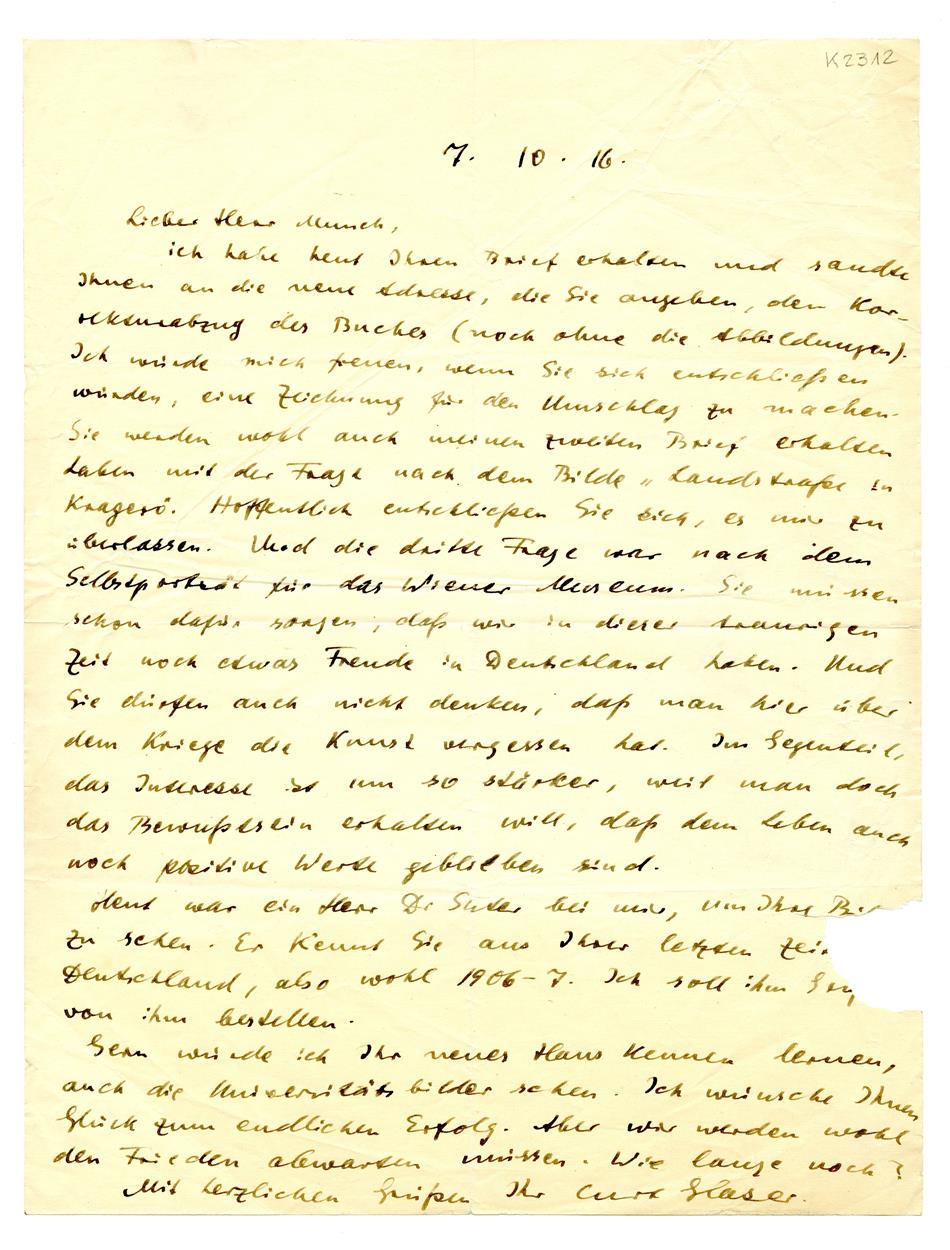 K2312
7. 10. 16.
Lieber Herr Munch,
ich habe heut Ihren Brief erhalten und sandte
Ihnen an die neue Adresse, die Sie angeben, den Kor-
rekturabzug des Buches (noch ohne die Abbildungen).
Ich würde mich freuen, wenn Sie sich entschließen
würden, eine Zeichnung für den Umschlag zu machen.
Sie werden wohl auch meinen zweiten Brief erhalten
haben mit der Frage nach dem Bilde „Landstraße in
Kragerö. Hoffentlich entschließen Sie sich, es mir zu
überlassen. Und die dritte Frage war nach dem
Selbstporträt für das Wiener Museum. Sie müssen
schon dafür sorgen, daß wir in dieser traurigen
Zeit noch etwas Freude in Deutschland haben. Und
Sie dürfen auch nicht denken, daß man hier über
dem Kriege die Kunst vergessen hat. Im Gegenteil,
das Interesse ist um so stärker, weil man doch
das Bewußtsein erhalten will, daß dem Leben auch
noch positive Werte geblieben sind.
Heut war ein Herr Dr Suter bei mir, um Ihre
zu sehen. Er kennt Sie aus Ihrer letzten
Deutschland, also wohl 1906-7. Ich soll ihm
von ihm bestellen.
Gern würde ich Ihr neues Haus kennen lernen,
auch die Universitätsbilder sehen. Ich wünsche Ihnen
Glück zum endlichen Erfolg. Aber wir werden wohl
den Frieden abwarten müssen. Wie lange noch?
Mit herzlichen Grüßen Ihr Curt Glaser.